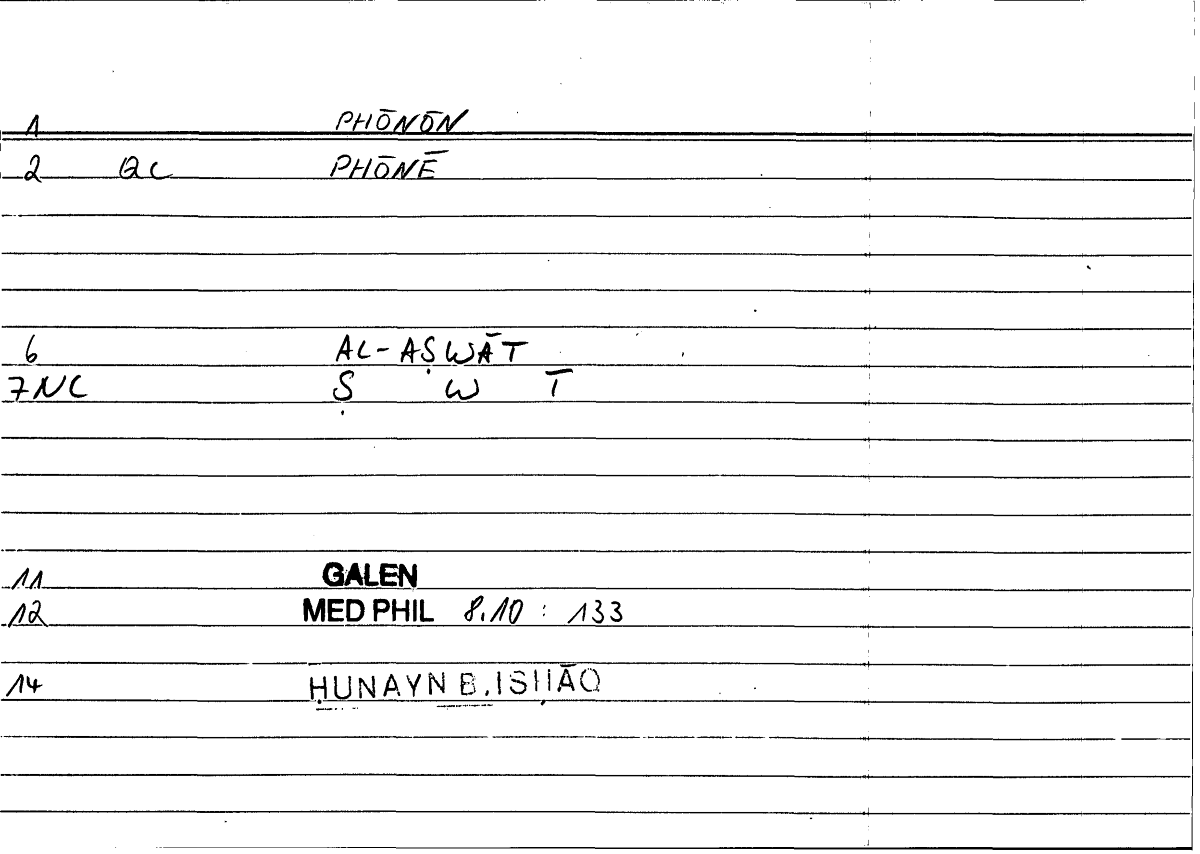 1 PHŌNŌN
2 QC PHŌNĒ
6 AL-AṢWĀT
7NC Ṣ W T
11 GALEN
12 MED PHIL 8.10 : 133
14 ḤUNAYN B. ISḤĀQ